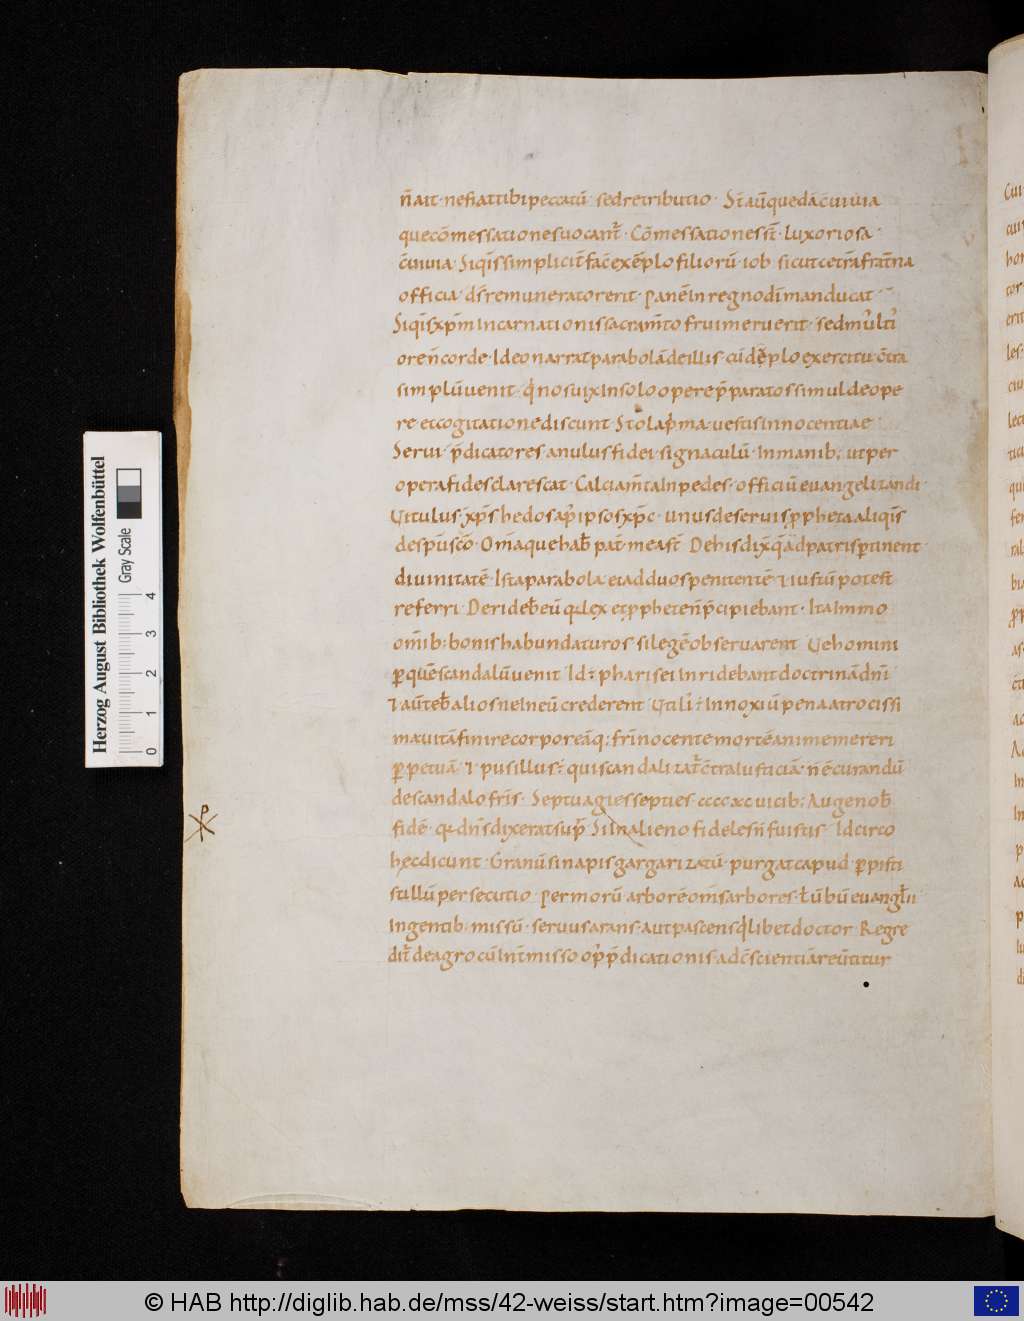 n̄ ait · ne fiat tibi peccatū · sed retributio · St̄ aū quedā c̄uiuia
que cōmessationes uocant᷑ · Cōmessationes st̄ · luxoriosa
c̄uiuia · Siq̄s simplicit̄ fac̄ exēplo filiorū · iob · sicut cet̄ra frat̄na
officia · dš remunerator erit · panē in regno dī manducat
Siq̄s xp̄m incarnationis sacram̄to frui meruerit · sed
oreñ corde · Ideo narrat parabolā de illis · exercitu c̄tra
simplū uenit · nos uix in solo opere p̄paratos simul de ope
re et cogitatione discunt · Stola p̄ma · uestis innocentiae
Serui · p̄dicatores · anulus fidei · signaculū · In manib; · ut per
opera fides clarescat · Calciam̄ta in pedes · officiū euangelizandi
Uitulus · xp̄s · hedos ap̄ ipsos xp̄c · unus de seruis p̱pheta aliq̄s
de sp̄u sc̄o · Om̄a que hab̄ pat̄ · mea st̄ · De his dix̄ q̄ ad patris p̱tinent
diuinitatē · Ista parabola et ad duos penitentē ⁊ iustū potest
referri · Derideb̄ eū lex et p̱phete n̄ p̄cipiebant · Ita immo
om̄ib; bonis habundaturos · si legē obseruarent · Ue homini
p̱ quē scandalū uenit · Id÷ pharisei inridebant doctrinā dn̄i
⁊ aūt eb̄ alios ne in eū crederent · Utili᷑ ÷ innoxiū pena atrocissi
ma uitā finire corporeā q; fr̄i nocente mortē anime mereri
p̱petuā · ⁊ pusillus ÷ qui scandalizat᷑ c̄tra iusticiā · n̄ ē curandū
de scandalo fr̄is · Septuagies septies · cccc xc uicib; · Augeñob̄
fidē · dn̄s dixerat sup̄ Si in alieno fideles n̄ fuistis · Idcirco
hęc dicunt · Granū sinapis gargarizatū · purgat capud · p̱ pisti
stillū persecutio · per morū arborē om̄s arbores · ł ūbū euangłii
Ingentib; missū · seruus arans · aut pascens q̇libet doctor · Regre
dit᷑ de agro cū int̄misso op̄ p̄dicationis · ad c̄scientiā reūtitur
Herzog August Bibliothek Wolfenbüttel
Gray Scale
0 1 2 3 4
© HAB http://diglib.hab.de/mss/42-weiss/start.htm?image=00542